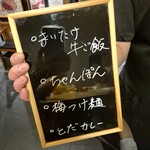 ○まいたけ
牛ご飯
○ちゃんぽん
○梅つけ麺
○とだカレー